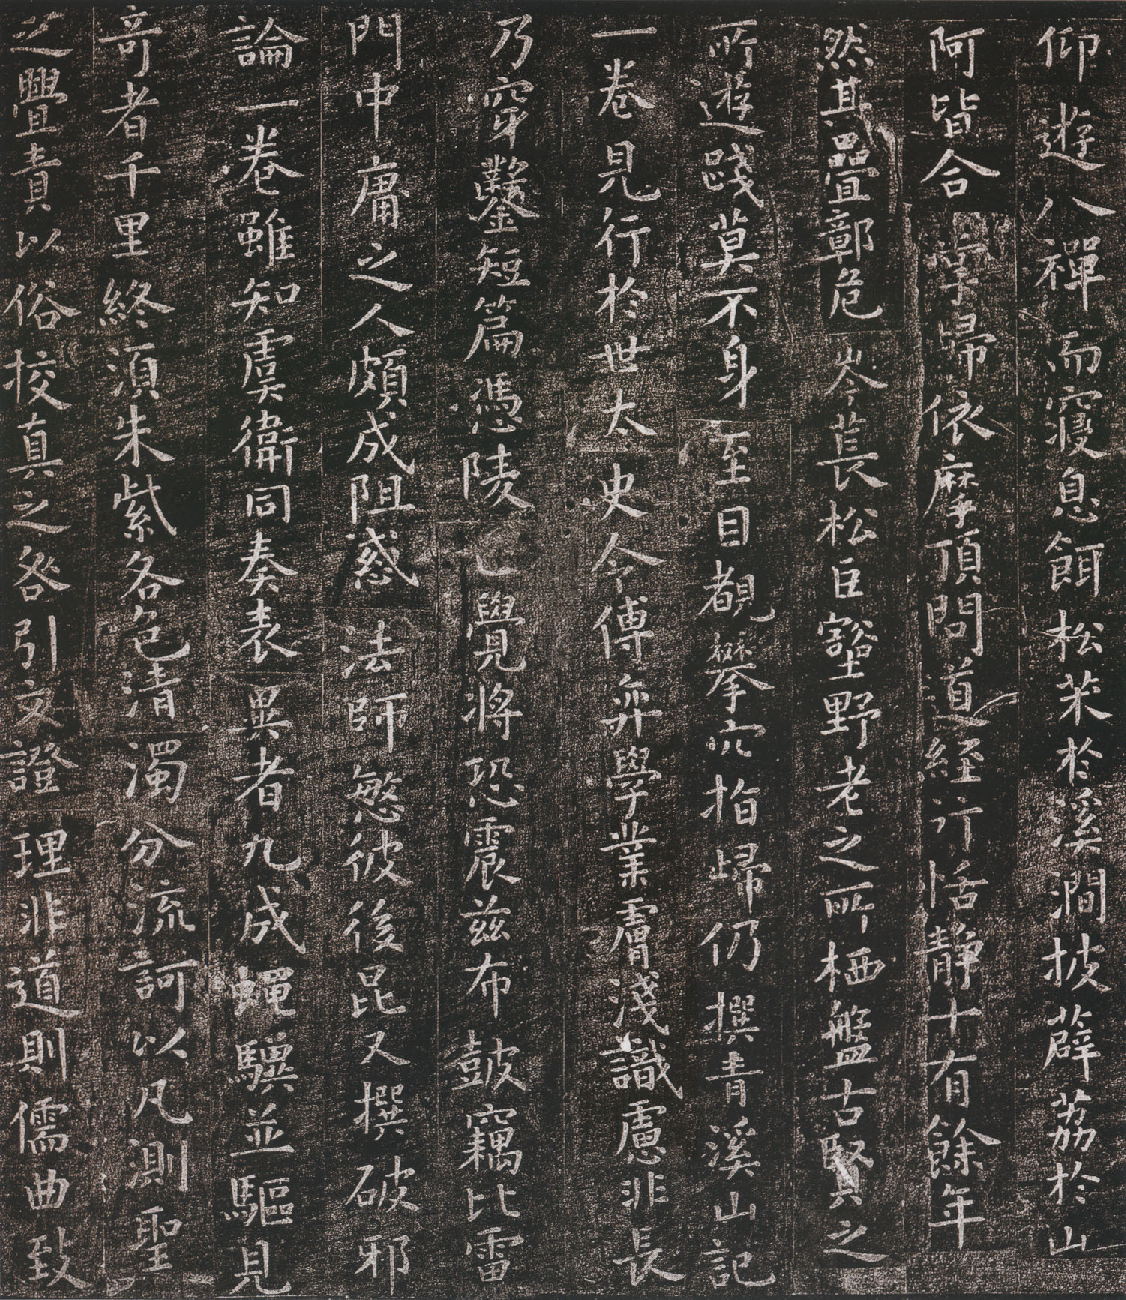 仰遊八禪而寢息餌松茱於溪澗披薜荔於山
阿皆合掌歸依摩頂問道經行恬靜十有餘年
然其疊鄣危岑萇松巨壑野老之所栖盤古賢之
所遊踐莫不身至目覩攀穴指歸仍撰青溪山記
一卷見行於世太史令傅弈學業膚淺識慮非長
乃穿鑿短篇憑陵正覺將恐震茲布皷竊比雷
門中庸之人頗成阻惑法師慜彼後昆又撰破邪
論一卷雖知虞衞同奏表異者九成蠅驥並驅見
奇者千里終須朱紫各色清濁分流訶以凡測聖
之舋責以俗挍真之咎引文證理非道則儒曲致